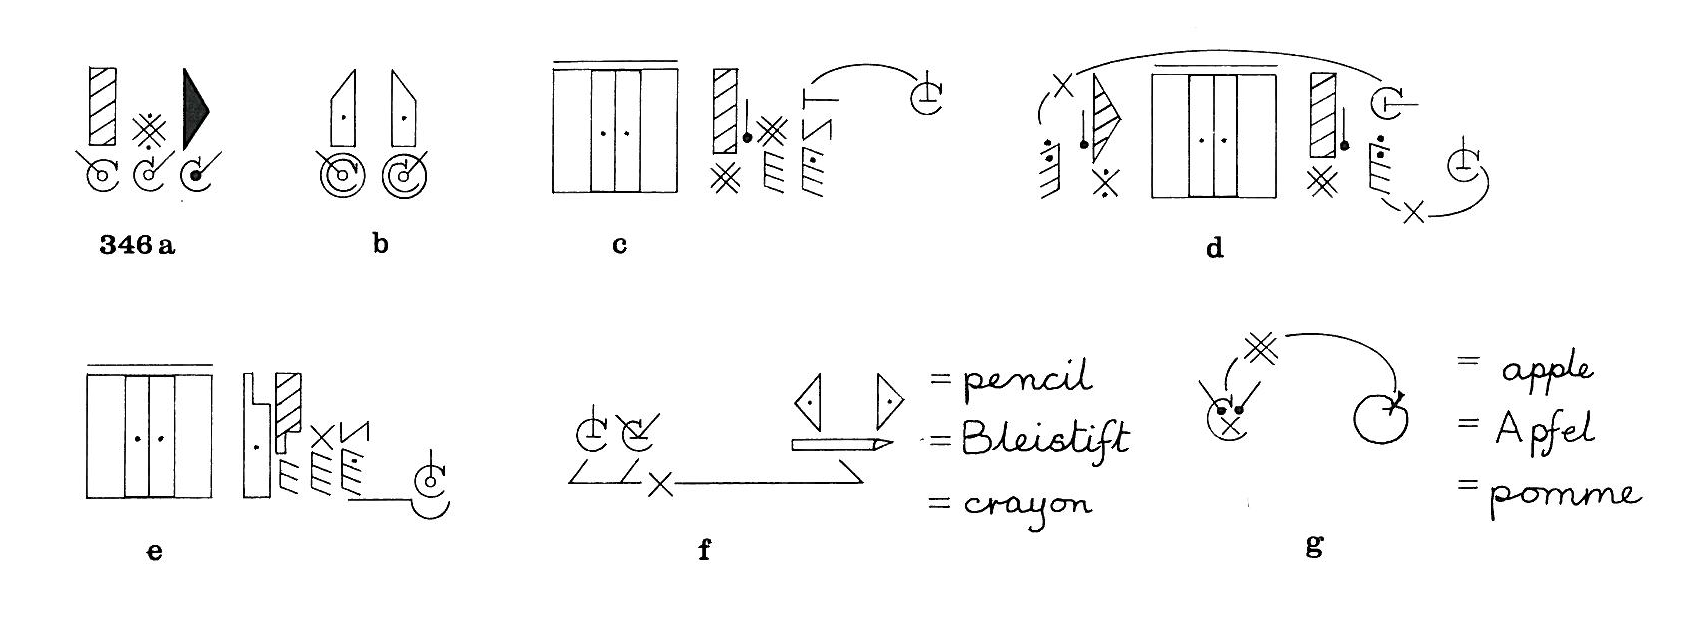 346 a
b
c
d
e
f
= pencil
= Bleistift
= crayon
g
= apple
= Apfel
= pomme